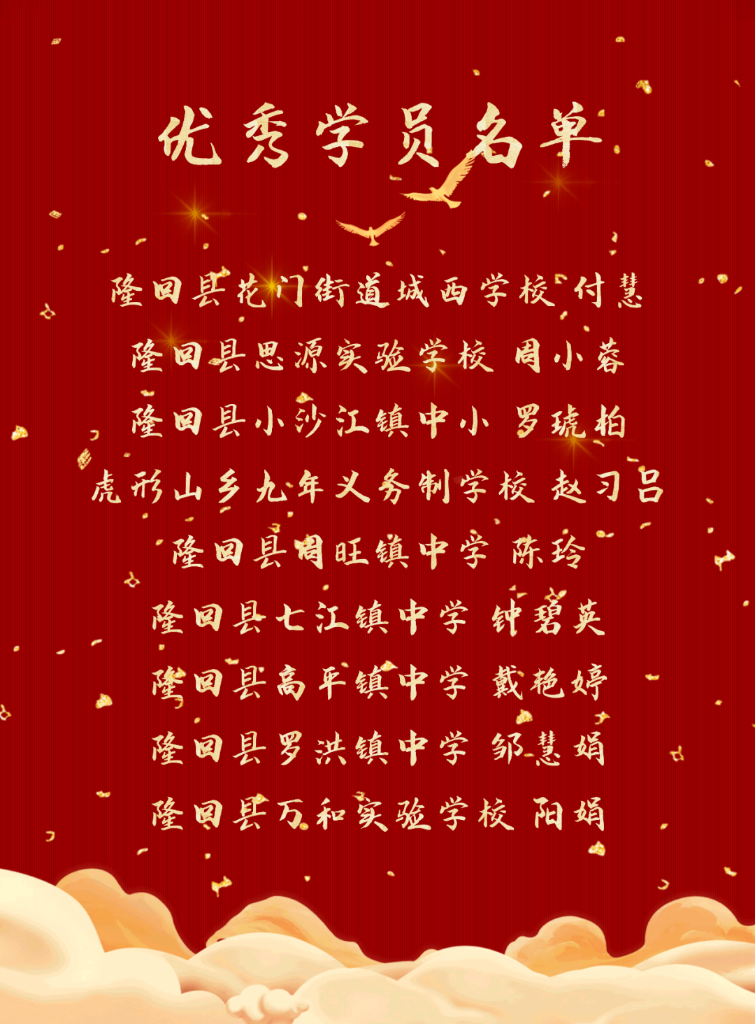 优秀学员名单
隆回县花门街道城西学校 付慧
隆回县思源实验学校 周小蓉
隆回县小沙江镇中小 罗琥柏
虎形山乡九年义务制学校 赵习吕
隆回县周旺镇中学 陈玲
隆回县七江镇中学 钟碧英
隆回县高平镇中学 戴艳婷
隆回县罗洪镇中学 邹慧娟
隆回县万和实验学校 阳娟